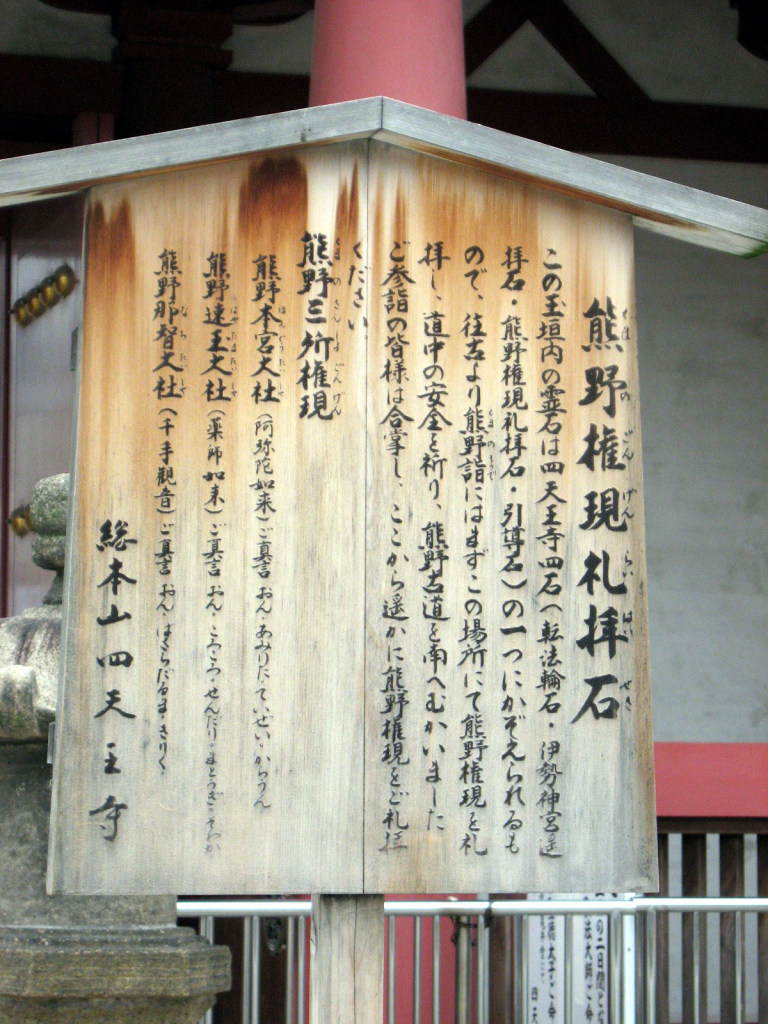 熊野権現礼拝石
くまのごんげんらいはいせき
この玉垣内の霊石は四天王寺四石(転法輪石・伊勢神宮遥
拝石・熊野権現礼拝石・引導石)の一つにかぞえられるも
ので、往古より熊野詣にはまずこの場所にて熊野権現を礼
くまのもうで
拝し、道中の安全を祈り、熊野古道を南へむかいました
ご参詣の皆様は合掌し、ここから遥かに熊野権現をご礼拝
ください
熊野三所権現
くまのさんしょごんげん
熊野本宮大社(阿弥陀如来)ご真言 おん・あみりた・ていぜい・からうん
ほんぐうたいしゃ
熊野速玉大社(薬師如来)ご真言 おん・ころころ・せんだり・まとうぎ・そわか
はやたまたいしゃ
熊野那智大社(千手観音)ご真言 おん・ばさらだるま・きりく
なちたいしゃ
総本山四天王寺